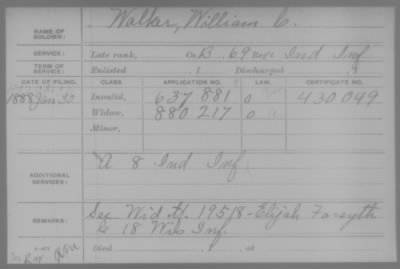 NAME OF SOLDIER: Walker, William C.
SERVICE: Late rank, Co. B, 69 Reg't Ind Inf
TERM OF SERVICE: Enlisted , 1 Discharged , 1
DATE OF FILING. CLASS. APPLICATION NO. LAW. CERTIFICATE NO.
1888 Jan 30 Invalid, 637 881 430 049
Widow, 880 217
Minor,
ADDITIONAL SERVICES: A 8 Ind Inf
REMARKS: See Wid 19518-Elijah Forsyth
18 Wis Inf.
Died , 1 , at